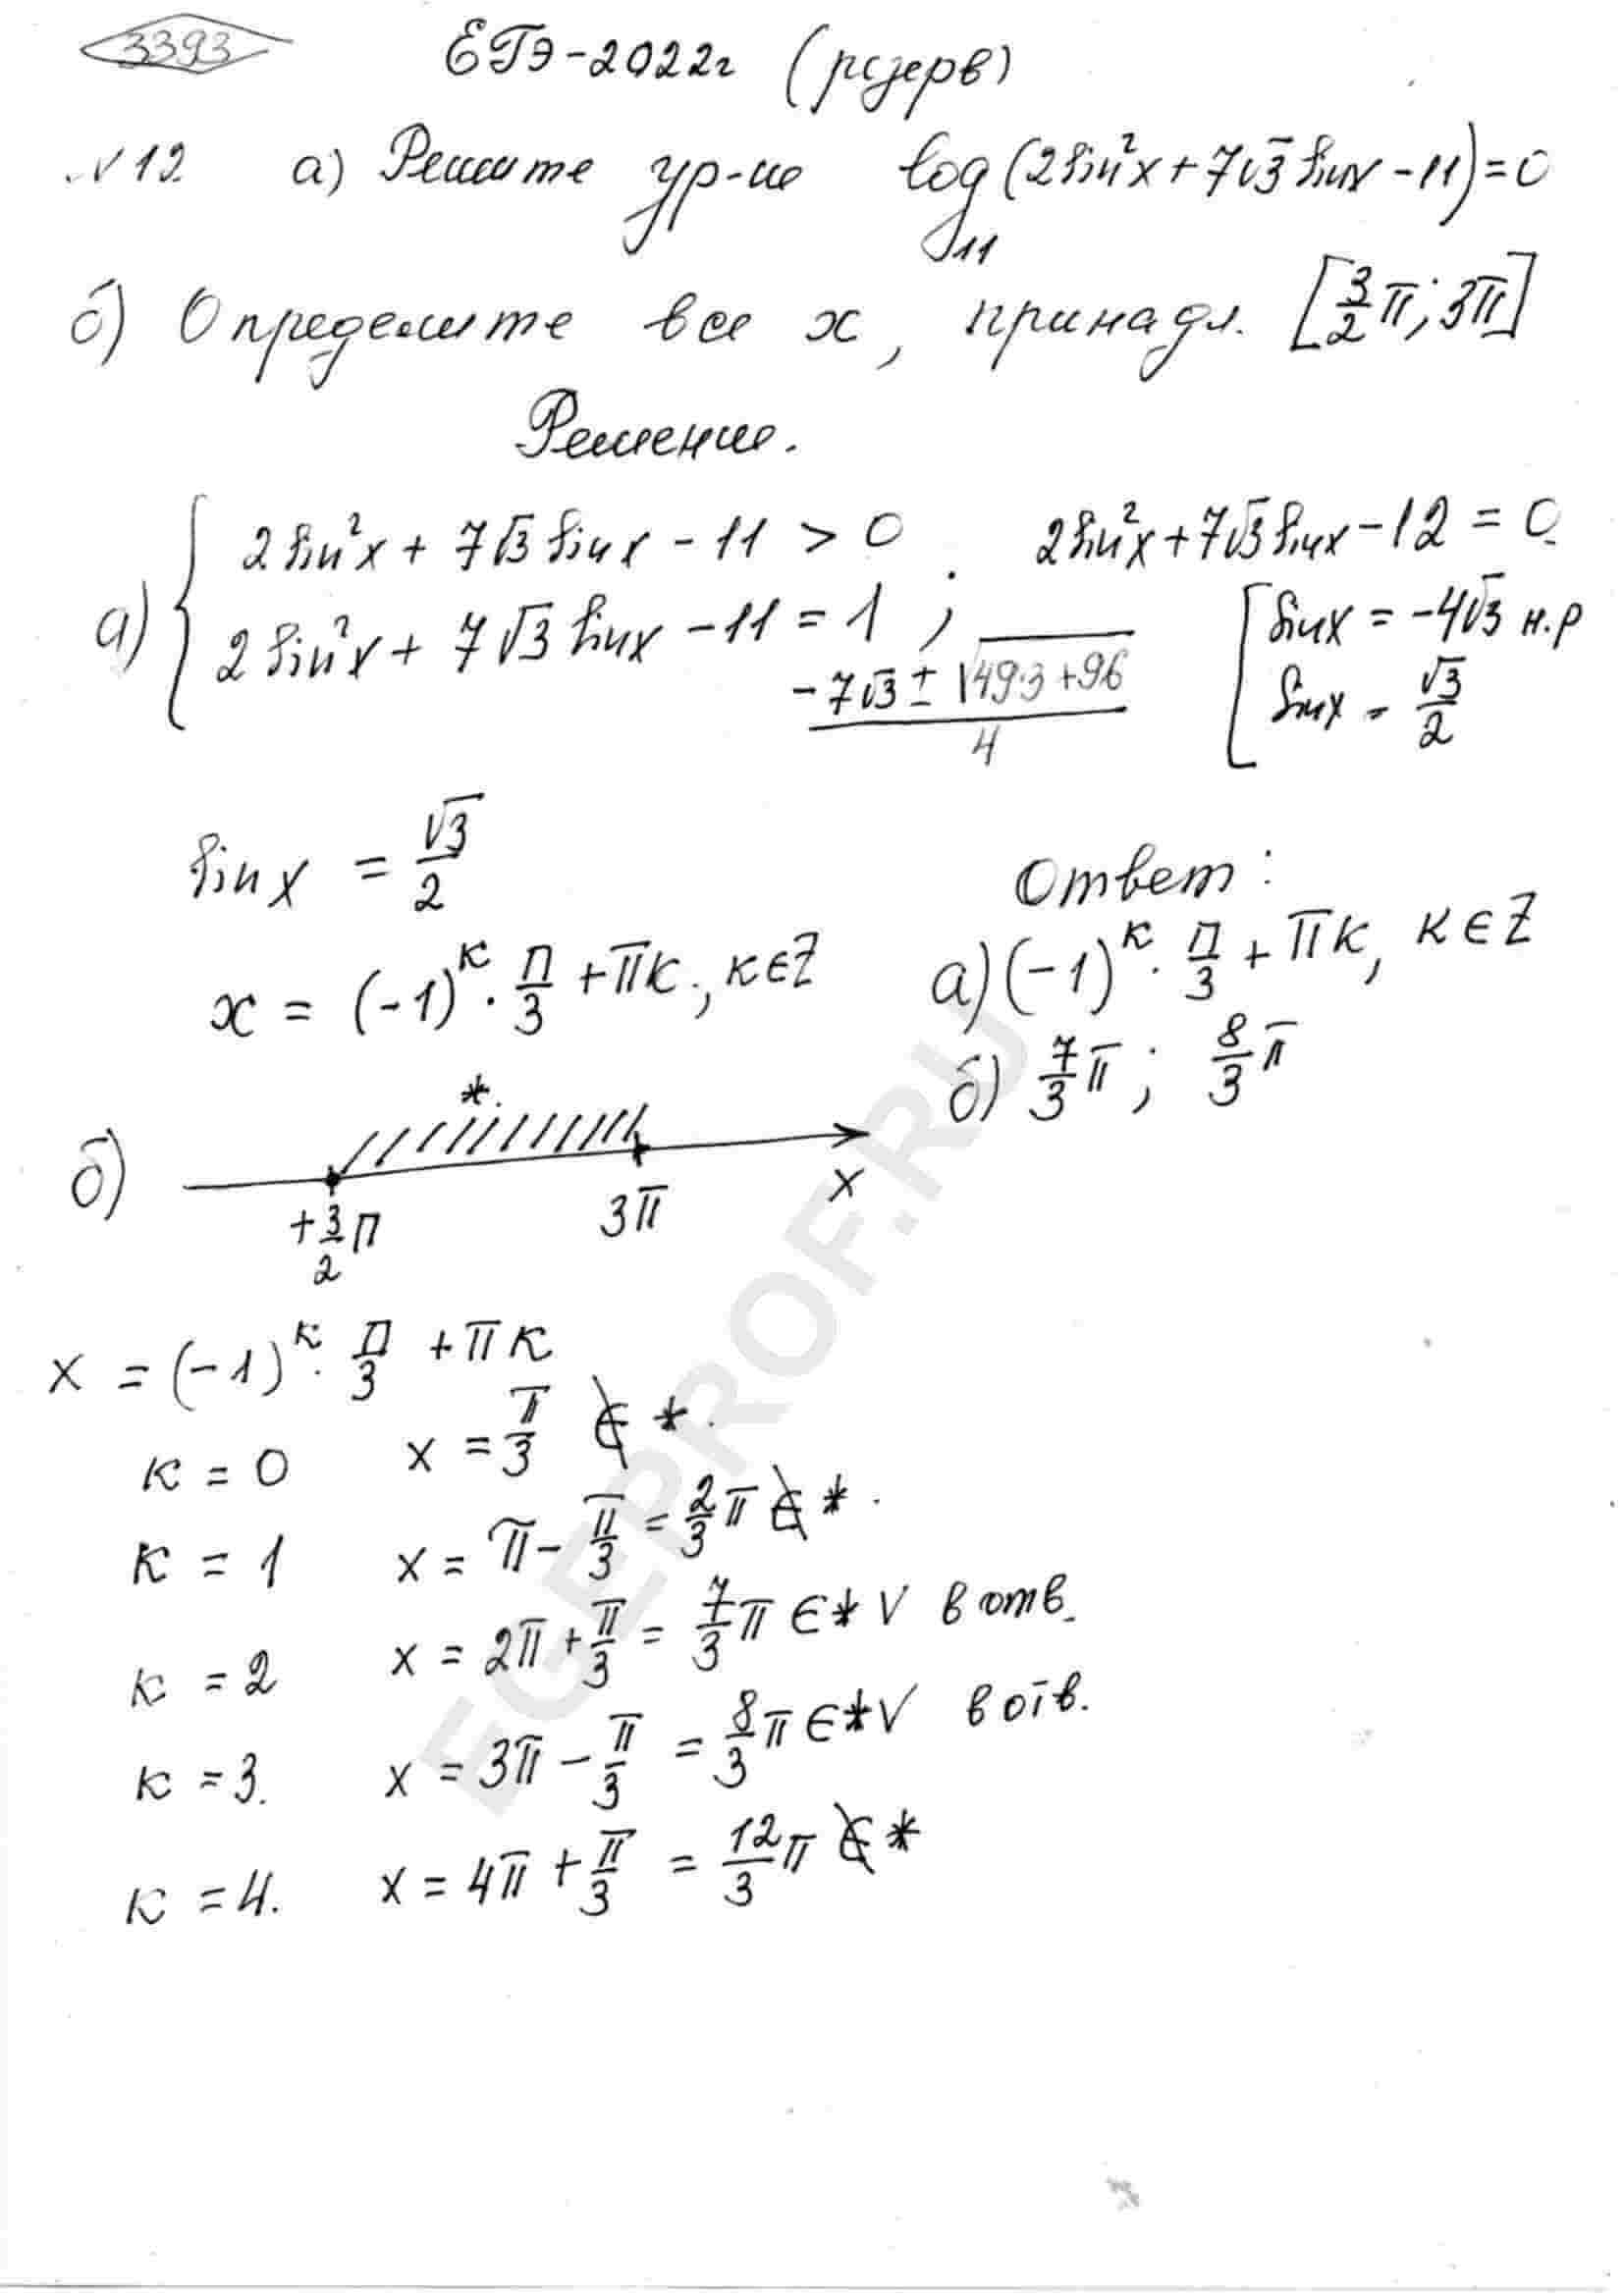 3393
ЕГЭ-2022г (резерв)
№12. а) Решите ур-ие log₁₁(2sin²x + 7√3 sinx - 11) = 0
б) Определите все x, принадл. [3/2 π; 3π]
Решение.
а) { 2sin²x + 7√3 sinx - 11 > 0 ; 2sin²x + 7√3 sinx - 12 = 0.
2sin²x + 7√3 sinx - 11 = 1 ; [ sinx = -4√3 н.р
(-7√3 ± √(49·3+96))/4 sinx = √3/2
sinx = √3/2
x = (-1)^к · π/3 + πк, к∈Z
Ответ:
а) (-1)^к · π/3 + πк, к∈Z
б) 7/3 π; 8/3 π
б) *
+3/2 π 3π x
x = (-1)^к · π/3 + πк
к = 0 x = π/3 ∉ *.
к = 1 x = π - π/3 = 2/3 π ∉ *.
к = 2 x = 2π + π/3 = 7/3 π ∈ * V в отв.
к = 3. x = 3π - π/3 = 8/3 π ∈ * V в отв.
к = 4. x = 4π + π/3 = 12/3 π ∉ *
EGEPROF.RU